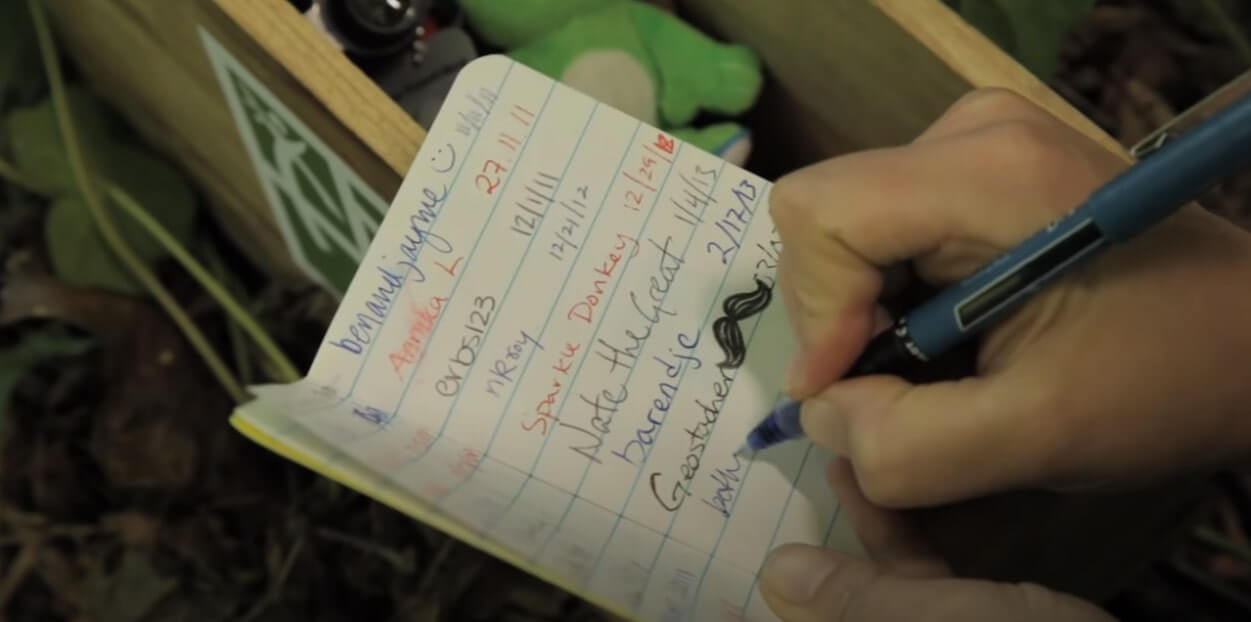 benandjayme :) 11/11/11
Annika L 27.11.11
erbs123 12/1/11
nkroy 12/21/12
Sparkle Donkey 12/29/12
Nate the Great 1/4/13
barendje 2/17/13
Geostacher